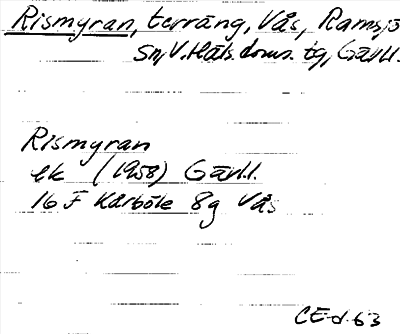 Rismyran, terräng, Vås, Ramsjö
Sn, V. Häls. doms. tg, Gävl.l.
Rismyran
ek (1958) Gävl.l.
16 F Kårböle 8g Vås
CE-d. 63